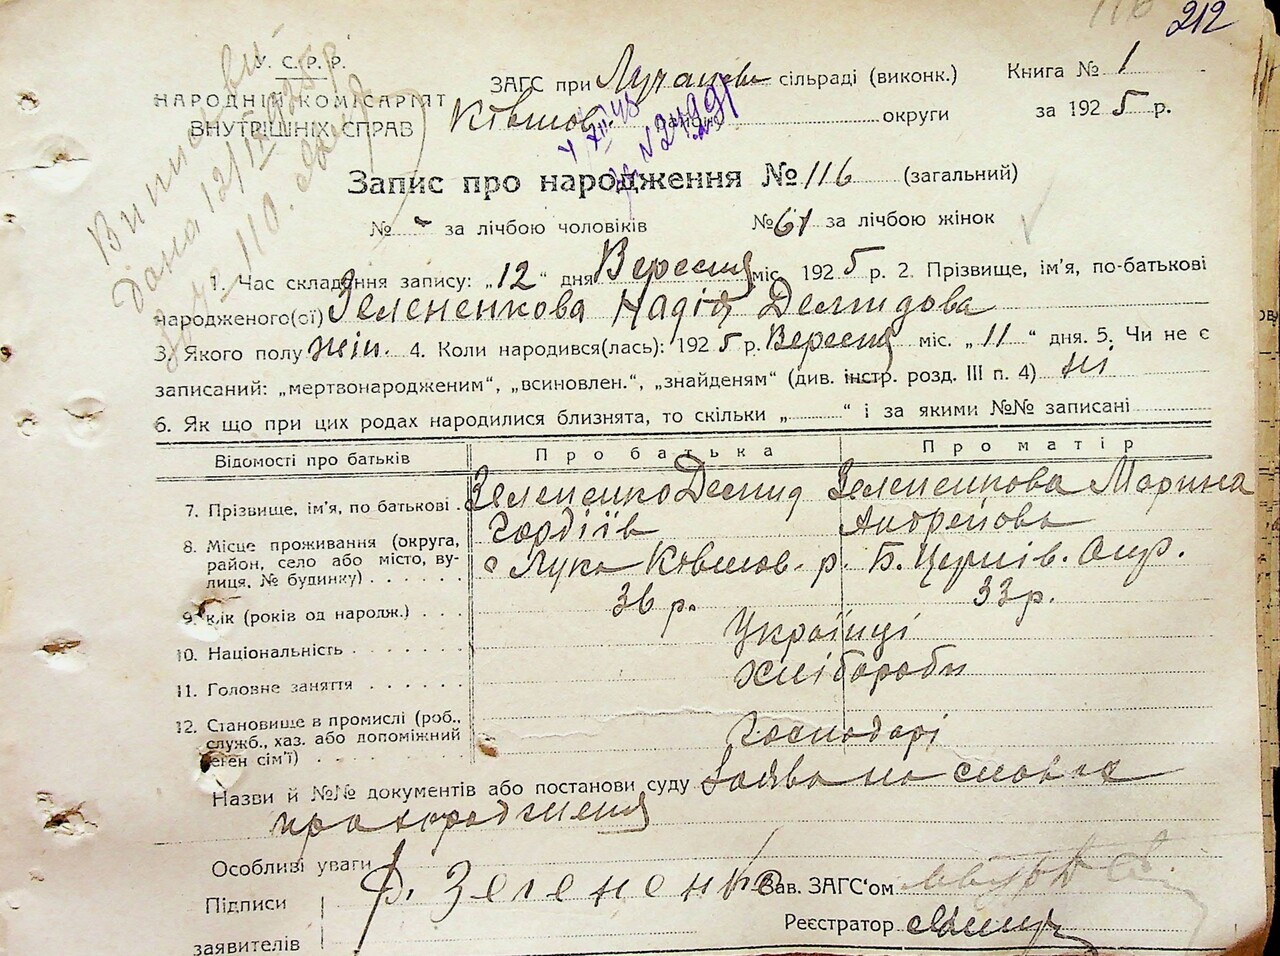 212
У. С. Р. Р.
НАРОДНІЙ КОМІСАРІЯТ
ВНУТРІШНІХ СПРАВ
ЗАГС при Лучанські сільраді (виконк.)
Ківшов округи
Книга № 1
за 1925 р.
Виписка
Дана 12/
Запис про народження № 116 (загальний)
№ - за лічбою чоловіків № 61 за лічбою жінок
1. Час складення запису: „12“ дня Вересня міс. 1925 р. 2. Прізвище, ім'я, по-батькові
народженого(ої) Зелененкова Надія Демидова
3. Якого полу жін. 4. Коли народився(лась): 1925 р. Вересня міс. „11“ дня. 5. Чи не є
записаний: „мертвонародженим“, „всиновлен.“, „знайденям“ (див. інстр. розд. III п. 4) ні
6. Як що при цих родах народилися близнята, то скільки „ “ і за якими №№ записані
Відомості про батьків Про батька Про матір
7. Прізвище, ім'я, по батькові . Зелененко Демид Гордіїв Зелененкова Марина Андрейова
8. Місце проживання (округа, район, село або місто, вулиця, № будинку) с Лука Ківшов. р. Б. Церків. Окр.
9. вік (років од народж.) 36 р. 33 р.
10. Національність Українці
11. Головне заняття хлібороби
12. Становище в промислі (роб., служб., хаз. або допоміжний член сім'ї) Господарі
Назви й №№ документів або постанови суду Заява на словах
про народження
Особливі уваги
Підписи
заявителів
Д. Зелененко
Зав. ЗАГС'ом
Реєстратор